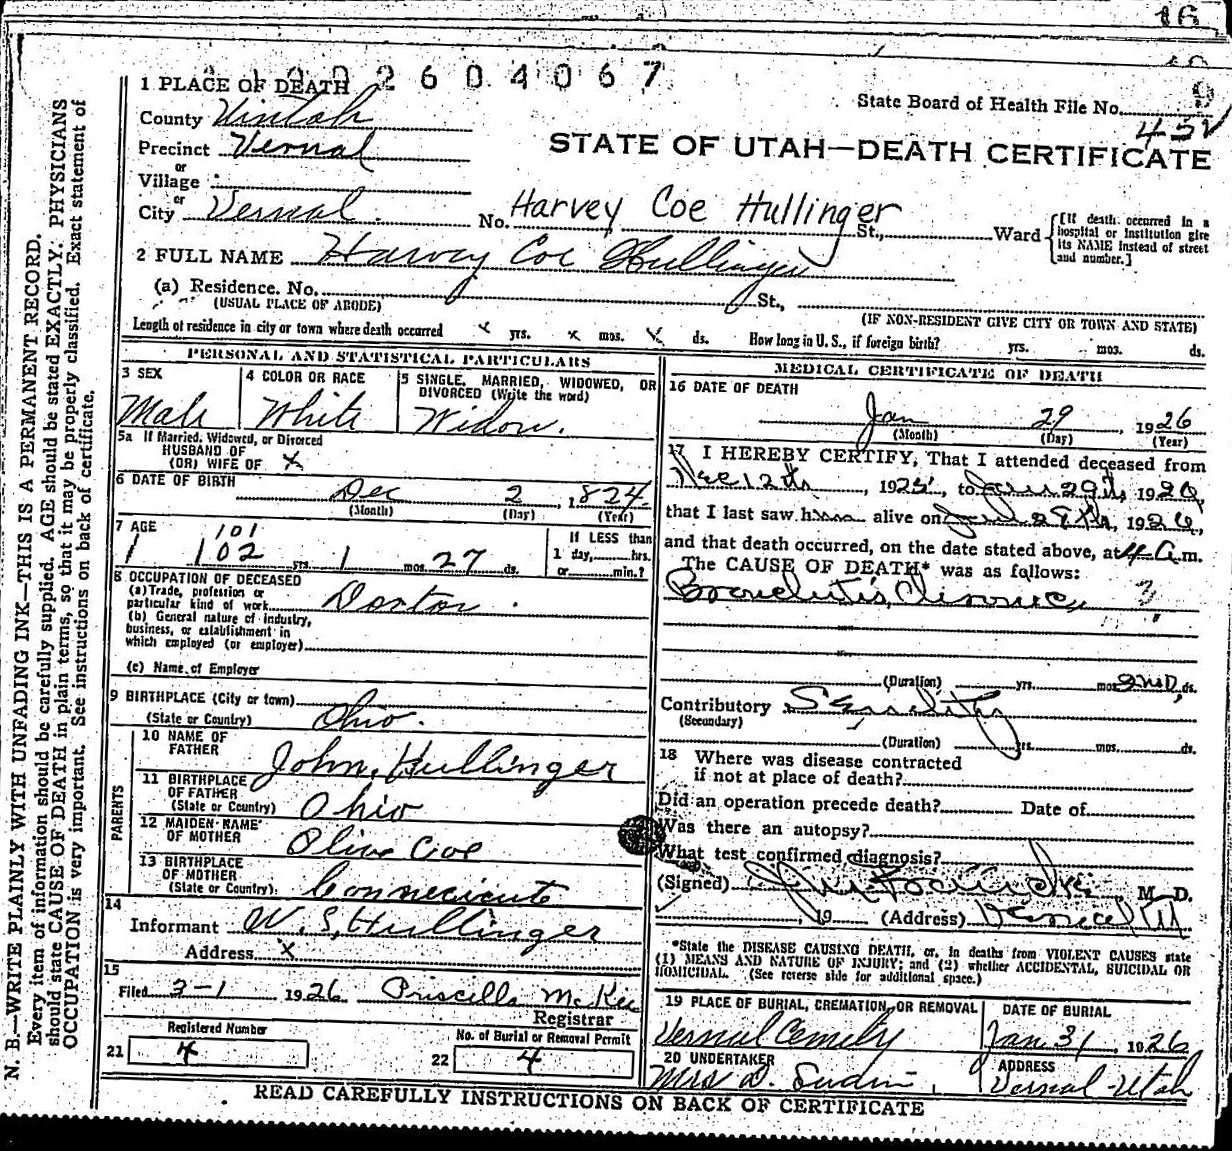 16
1002604067
1 PLACE OF DEATH
State Board of Health File No. 9
45V
County Uintah
STATE OF UTAH—DEATH CERTIFICATE
Precinct Vernal
or
Village
or
City Vernal. No. Harvey Coe Hullinger St., Ward
[If death occurred in a hospital or institution give its NAME instead of street and number.]
2 FULL NAME Harvey Coe Hullinger
(a) Residence. No. St.,
(USUAL PLACE OF ABODE) (IF NON-RESIDENT GIVE CITY OR TOWN AND STATE)
Length of residence in city or town where death occurred x yrs. x mos. x ds. How long in U. S., if foreign birth? yrs. mos. ds.
PERSONAL AND STATISTICAL PARTICULARS
3 SEX
Male
4 COLOR OR RACE
White
5 SINGLE, MARRIED, WIDOWED, OR DIVORCED (Write the word)
Widow.
5a If Married, Widowed, or Divorced
HUSBAND OF
(OR) WIFE OF x
6 DATE OF BIRTH Dec 2, 1824
(Month) (Day) (Year)
7 AGE
101
102 yrs. 1 mos. 27 ds.
If LESS than
1 day, hrs.
or min.?
8 OCCUPATION OF DECEASED
(a) Trade, profession or
particular kind of work Doctor.
(b) General nature of industry,
business, or establishment in
which employed (or employer)
(c) Name of Employer
9 BIRTHPLACE (City or town)
(State or Country) Ohio.
PARENTS
10 NAME OF
FATHER John, Hullinger
11 BIRTHPLACE
OF FATHER
(State or Country) Ohio
12 MAIDEN NAME
OF MOTHER Olive Coe
13 BIRTHPLACE
OF MOTHER
(State or Country) Connecicute
14
Informant W. S, Hullinger
Address x
15
Filed 3-1 1926 Priscilla McKee
Registrar
21 Registered Number
4
22 No. of Burial or Removal Permit
4
MEDICAL CERTIFICATE OF DEATH
16 DATE OF DEATH
Jan 29, 1926
(Month) (Day) (Year)
17 I HEREBY CERTIFY, That I attended deceased from
Dec 12th, 1925, to Jan 29th, 1926,
that I last saw him alive on Jan 29th, 1926,
and that death occurred, on the date stated above, at 4 a. m.
The CAUSE OF DEATH* was as follows:
Bronchitis, Chronic ?
(Duration) yrs. mos. ds.
Contributory Senility
(Secondary)
(Duration) yrs. mos. ds.
18 Where was disease contracted
if not at place of death?
Did an operation precede death? Date of
Was there an autopsy?
What test confirmed diagnosis?
(Signed) M. D.
, 19 (Address)
*State the DISEASE CAUSING DEATH, or, in deaths from VIOLENT CAUSES state
(1) MEANS AND NATURE OF INJURY; and (2) whether ACCIDENTAL, SUICIDAL OR
HOMICIDAL. (See reverse side for additional space.)
19 PLACE OF BURIAL, CREMATION, OR REMOVAL
Vernal Cemetry
DATE OF BURIAL
Jan 31, 1926
20 UNDERTAKER
Mrs D.
ADDRESS
Vernal-Utah
READ CAREFULLY INSTRUCTIONS ON BACK OF CERTIFICATE
N. B.—WRITE PLAINLY WITH UNFADING INK—THIS IS A PERMANENT RECORD.
Every item of information should be carefully supplied. AGE should be stated EXACTLY. PHYSICIANS
should state CAUSE OF DEATH in plain terms, so that it may be properly classified. Exact statement of
OCCUPATION is very important. See instructions on back of certificate.